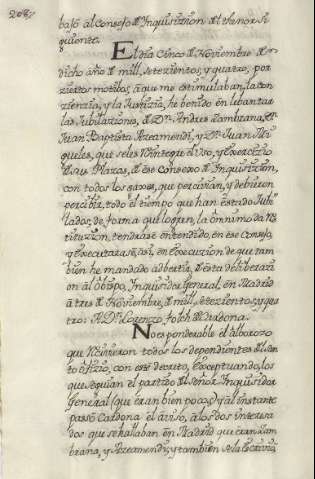 208,
bajó al Consejo de Inquisizion del thenor si
guiente.
El dia Cinco de Noviembre de
dicho año de mill, setezientos, y quatro, por
ziertos motibos, a que me estimulaban, la con
zienzia, y la Justizia, he benido en lebantar
las Jubilaziones, a Dn. Andres Zambrana, Dn.
Juan Baptista Arzeamendi, y Dn. Juan Mi
gueles, que se les Reintegre el Uso, y Exercizio
de sus Plazas, de ese Consexo de Inquisizion,
con todos los gaxes, que percivian, y debieron
percibir, todo el tiempo que han estado Jubi
lados, de forma que logren, la omnimoda Res
tituzion, tendrase entendido, en ese Consejo,
y Executarase, asi, en execuzion de que tam
bien he mandado adbertir, de esta deliberazi
on al Obispo, Inquisidor General, en Madrid
a tres de Noviembre, de mill, setezientos, y qua
tro: A Dn. Lorenzo folch de Cardona.
No es ponderable el alborozo
que Rezivieron todos los dependientes del San
to ofizio, con este decreto, Exceptuando, los
que seguian el partido del Señor Inquisidor
General (que eran bien pocos) y al instante
passó Cardona el aviso, a los dos interesa
dos que se hallaban en Madrid que eran Zam
brana, y Arzeamendi, y tambien se la